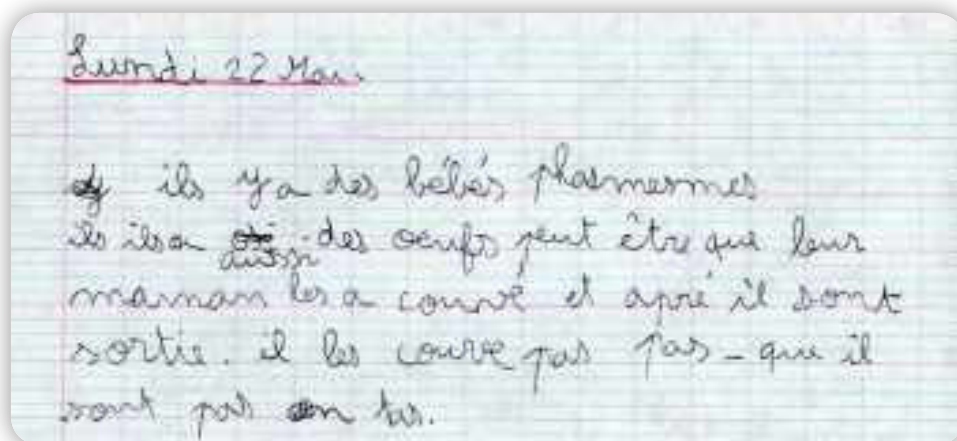 Lundi 22 Mai.
ils y a des bébés phasmesmes
ils ilsa aussi des oeufs peut être que leur
maman les a couvé et apré il sont
sortie. il les couve pas pas-que il
sont pas en tas.